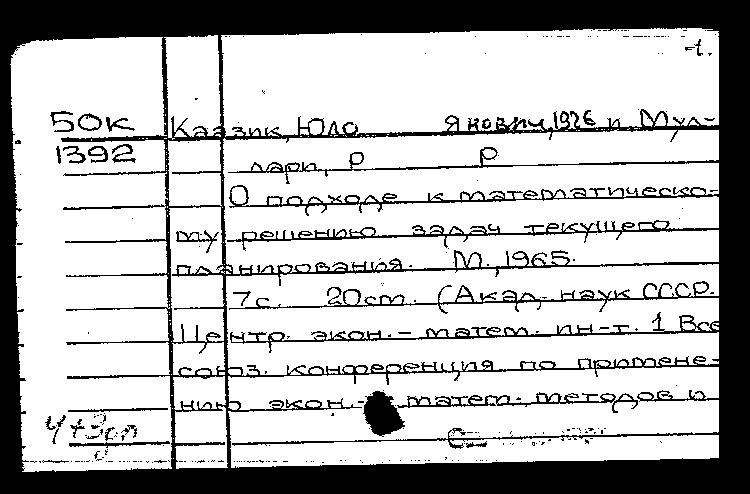 -t.
50к Каазик, Юло Янович, 1926 и Мул-
1392 лари, Р Р
О подходе к математическо-
му решению задач текущего
планирования. М., 1965.
7с. 20cm. (Акад. наук СССР.
Центр. экон.-матем. ин-т. 1 Все
союз. конференция по примене-
нию экон.- матем. методов и